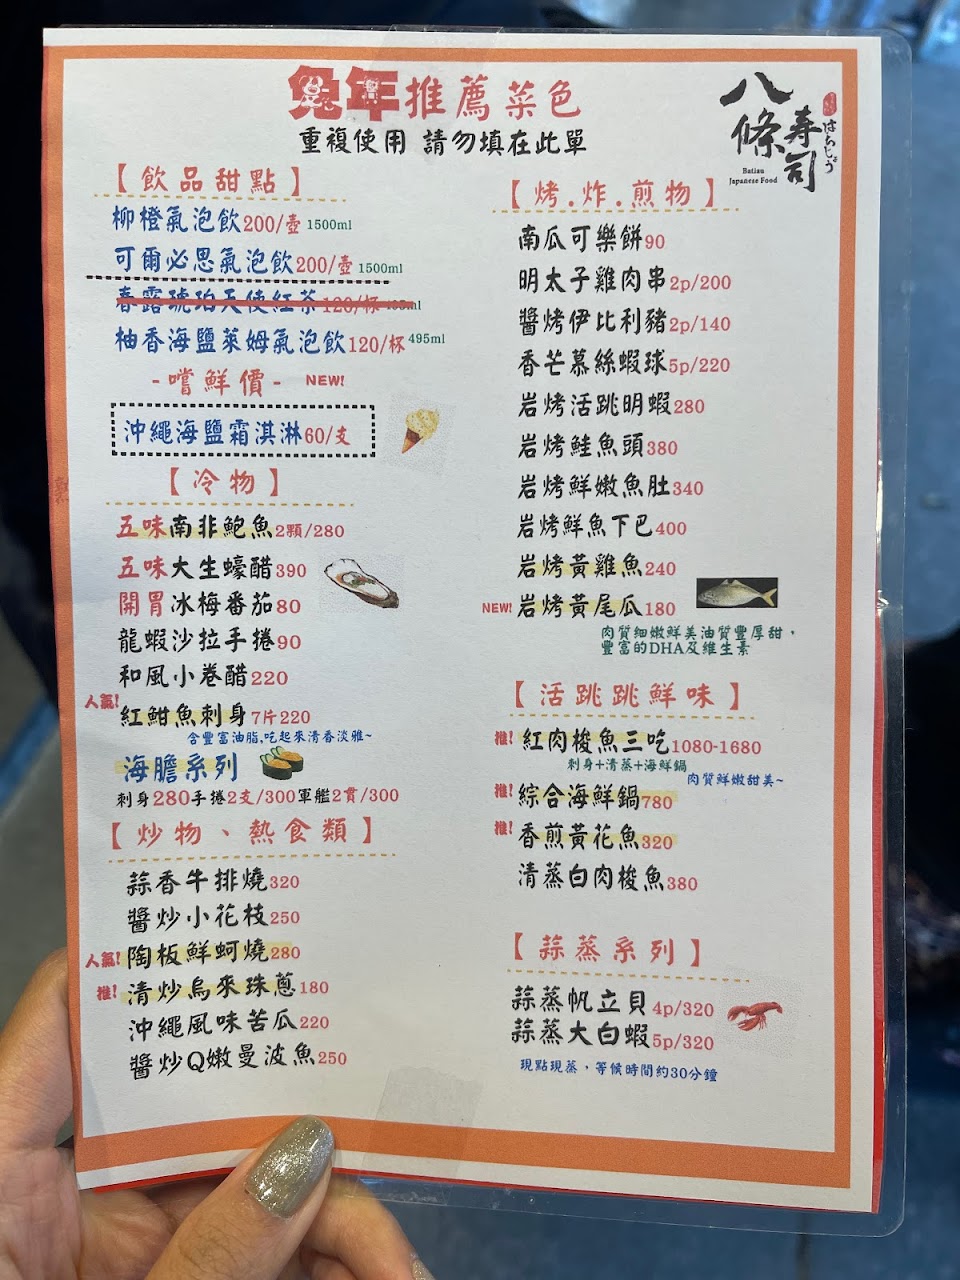 兔年推薦菜色
重複使用 請勿填在此單
八條壽司
はちじょう
Batiau
Japanese Food
【飲品甜點】
柳橙氣泡飲200/壺 1500ml
可爾必思氣泡飲200/壺 1500ml
春露琥珀天使紅茶120/杯 495ml
柚香海鹽萊姆氣泡飲120/杯 495ml
-嚐鮮價- NEW!
沖繩海鹽霜淇淋60/支
【冷物】
五味南非鮑魚2顆/280
五味大生蠔醋390
開胃冰梅番茄80
龍蝦沙拉手捲90
和風小卷醋220
人氣!紅魽魚刺身7片220
含豐富油脂,吃起來清香淡雅~
海膽系列
刺身280手捲2支/300軍艦2貫/300
【炒物、熱食類】
蒜香牛排燒320
醬炒小花枝250
人氣!陶板鮮蚵燒280
推!清炒烏來珠蔥180
沖繩風味苦瓜220
醬炒Q嫩曼波魚250
【烤.炸.煎物】
南瓜可樂餅90
明太子雞肉串2p/200
醬烤伊比利豬2p/140
香芒慕絲蝦球5p/220
岩烤活跳明蝦280
岩烤鮭魚頭380
岩烤鮮嫩魚肚340
岩烤鮮魚下巴400
岩烤黃雞魚240
NEW!岩烤黃尾瓜180
肉質細嫩鮮美油質豐厚甜，
豐富的DHA及維生素
【活跳跳鮮味】
推!紅肉梭魚三吃1080-1680
刺身+清蒸+海鮮鍋
肉質鮮嫩甜美~
推!綜合海鮮鍋780
推!香煎黃花魚320
清蒸白肉梭魚380
【蒜蒸系列】
蒜蒸帆立貝4p/320
蒜蒸大白蝦5p/320
現點現蒸，等候時間約30分鐘